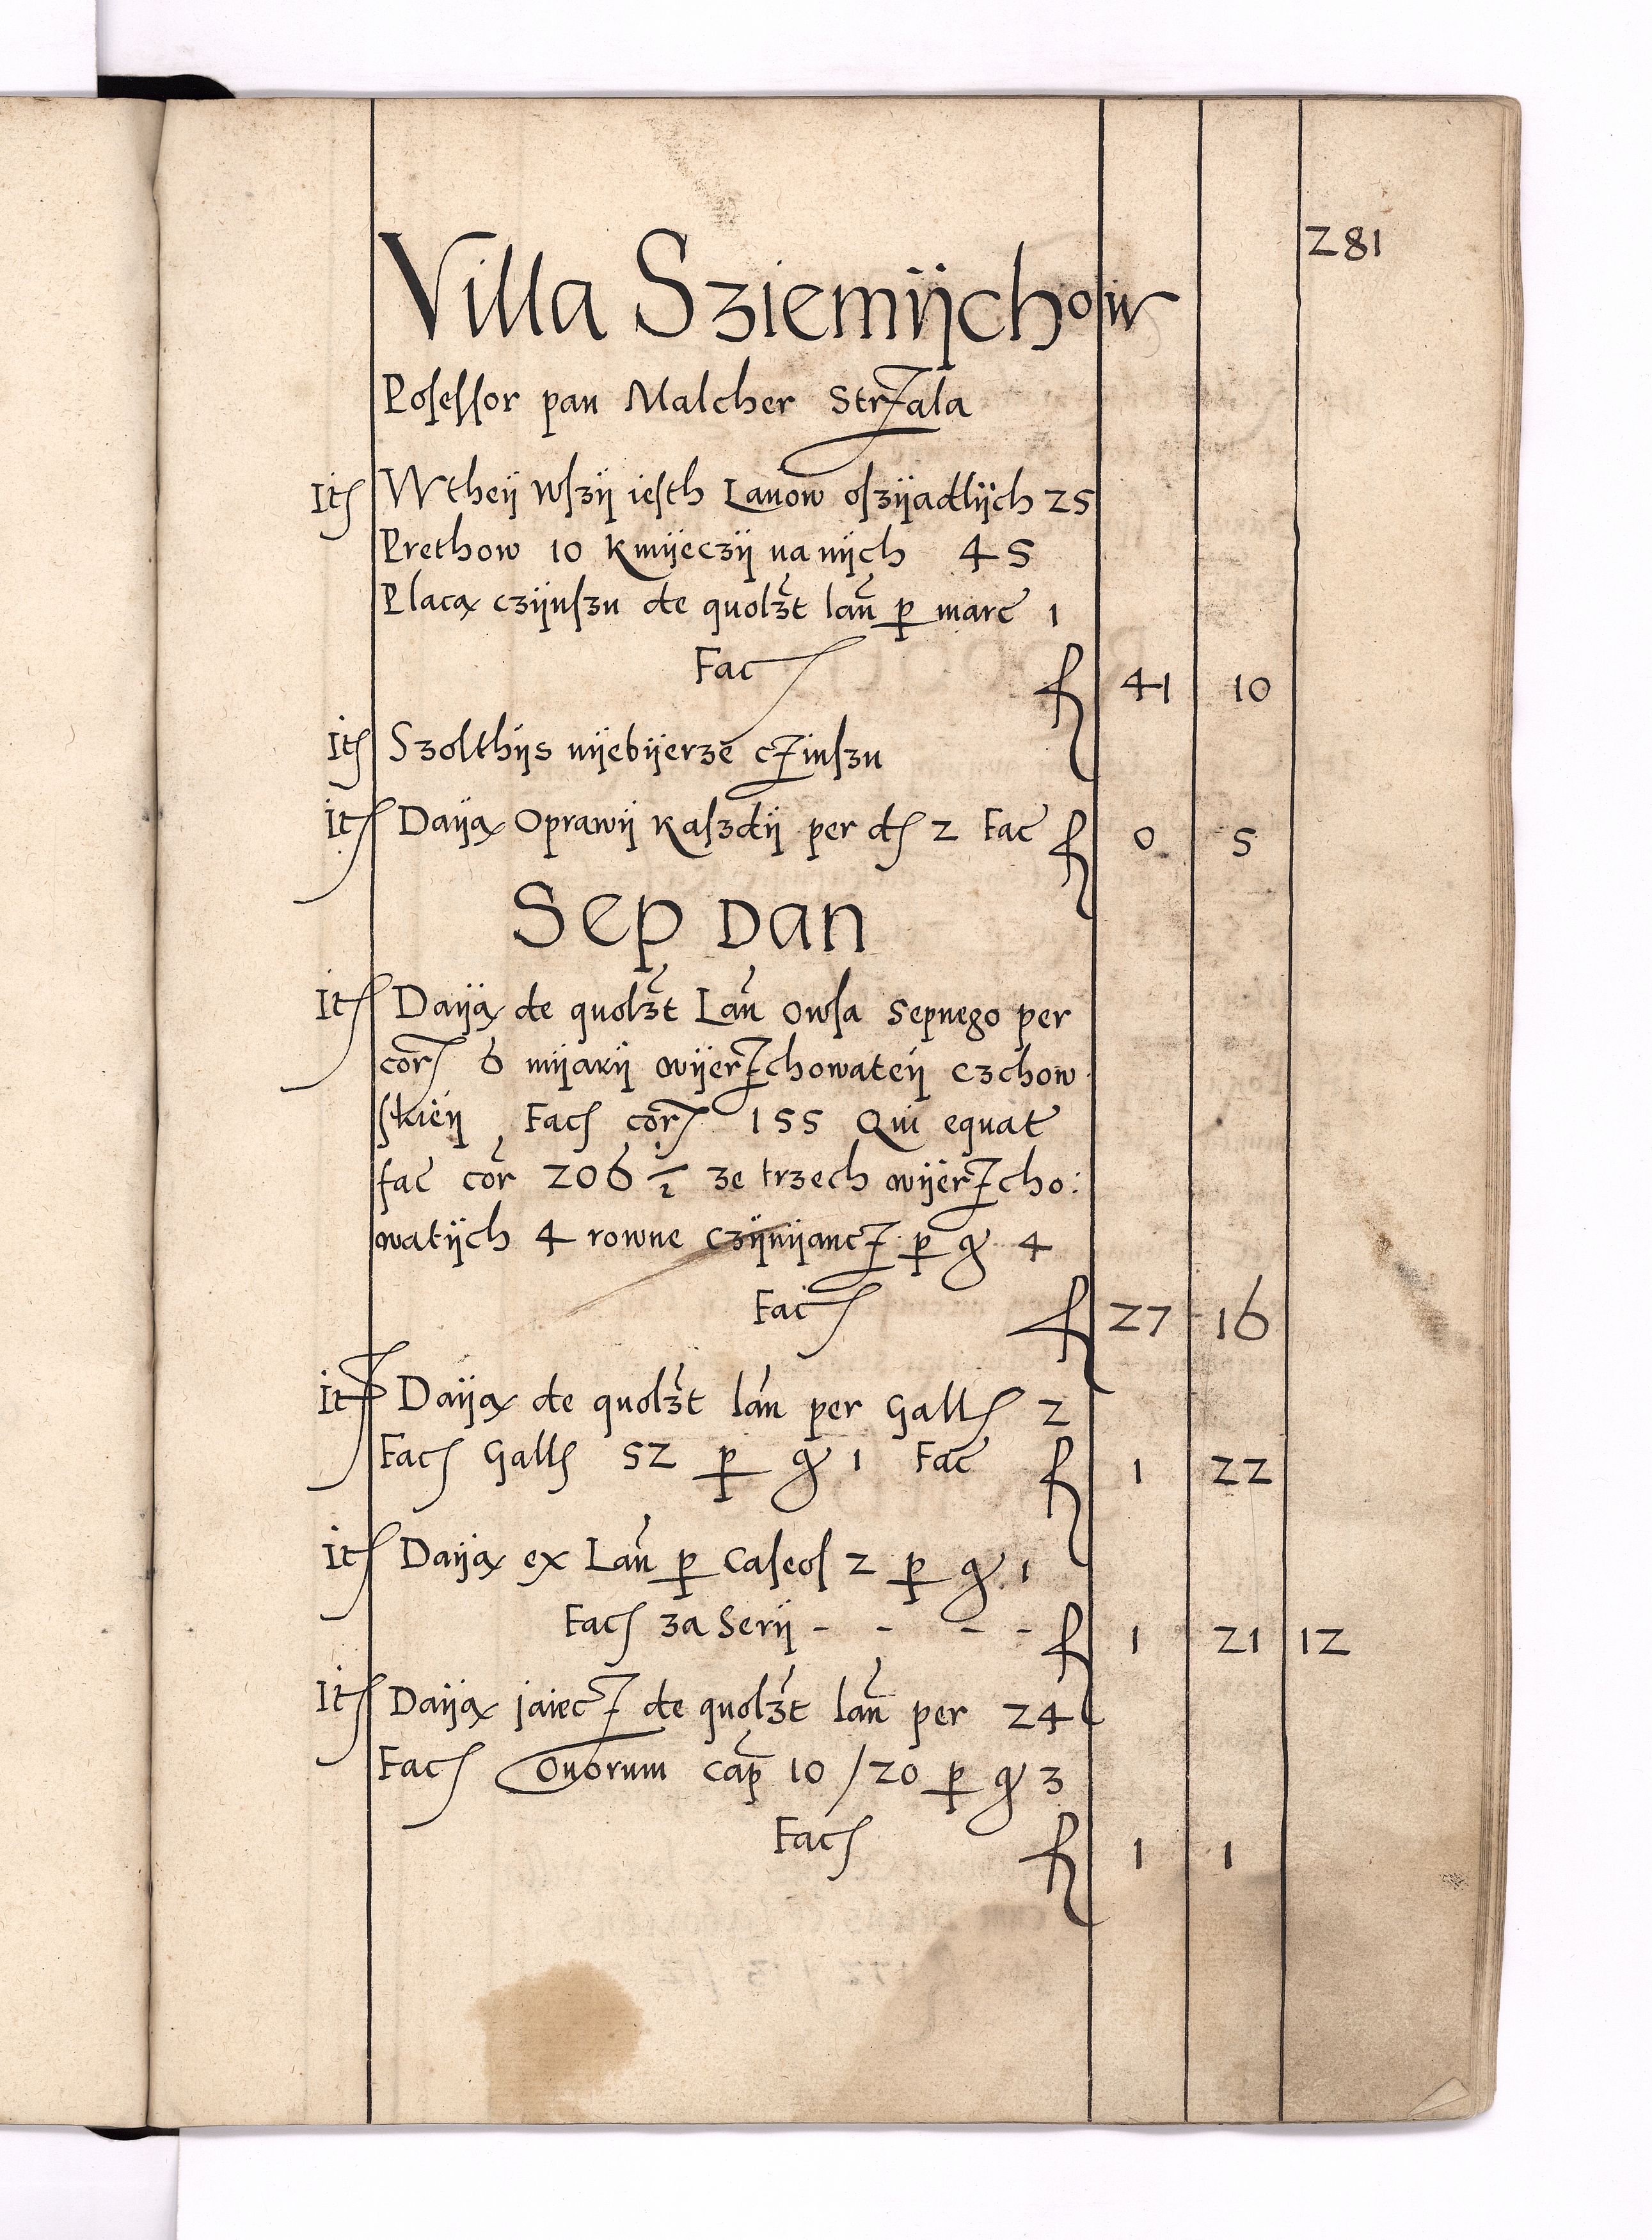 281
Villa Sziemijchow
Posessor pan Malcher Strzala
Its Wtheij wszij iesth Lanow oszijadlijch 25
Prethow 10 kmijeczij na nijch 45
Placą czijnszu de quolzt lan̄ ꝑ marc̄ 1
Fac fl 41 10
Its Szolthijs nijebijerze czinszu
Its Daiją Oprawij kaszdij per ds 2 Fac̄ fl 0 5
Sep Dan
Its Daiją de quolzt Lan̄ Owsa Sepnego per
cor̄ 6 mijarij wijerzchowateij Czchow
skieij Facs cor̄ 155 Qui equat
fac̄ cor̄ 206 ½ ze trzech wijerzcho:
watijch 4 rowne czijnijancz ꝑ gͬ 4
Facs fl 27 16
Its Daiją de quolzt lan per Galls 2
Facs Galls 52 ꝑ gͬ 1 Fac̄ fl 1 22
Its Daiją ex Lan̄ ꝑ Caseos 2 ꝑ gͬ 1
Facs za Serij - - - - fl 1 21 12
Its Daiją jaiecz de quolzt lan̄ per 24
Facs Ouorum cap̄ 10 / 20 ꝑ gͬ 3
Facs fl 1 1